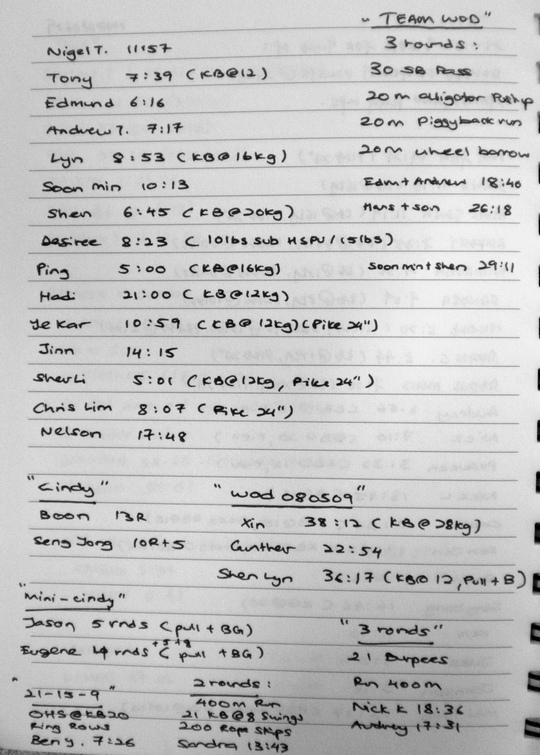 Nigel T. 11:57
Tony 7:39 (KB@12)
Edmund 6:16
Andrew T. 7:17
Lyn 8:53 (KB@16kg)
Soon min 10:13
Shen 6:45 (KB@20kg)
Desiree 8:23 ( 10lbs sub HSPU/15lbs)
Ping 5:00 (KB@16kg)
Hadi 21:00 (KB@12kg)
Je Kar 10:59 (KB@12kg)(Pike 24")
Jinn 14:15
SherLi 5:01 (KB@12kg, Pike 24")
Chris Lim 8:07 (Pike 24")
Nelson 17:48
"TEAM WOD"
3 rounds:
30 SB Pass
20m alligator Pushup
20m Piggyback run
20m wheel barrow
Edm + Andrew 18:40
Hans + son 26:18
Soon min + Shen 29:11
"Cindy"
Boon 13R
Seng Jong 10R+5
"Wod 080509"
Xin 38:12 (KB@28kg)
Gunther 22:54
Shen Lyn 36:17 (KB@12, Pull + B)
"Mini-cindy"
Jason 5 rnds (pull + BG)
Eugene 4 rnds +5+8 (pull + BG)
"3 ronds"
21 Burpees
Run 400m
Nick K 18:36
Audrey 17:31
"21-15-9"
OHS@KB20
Ring Rows
Ben y. 7:26
2 rounds:
400m Run
21 KB@8 Swings
200 Rope Skips
Sandra 13:43